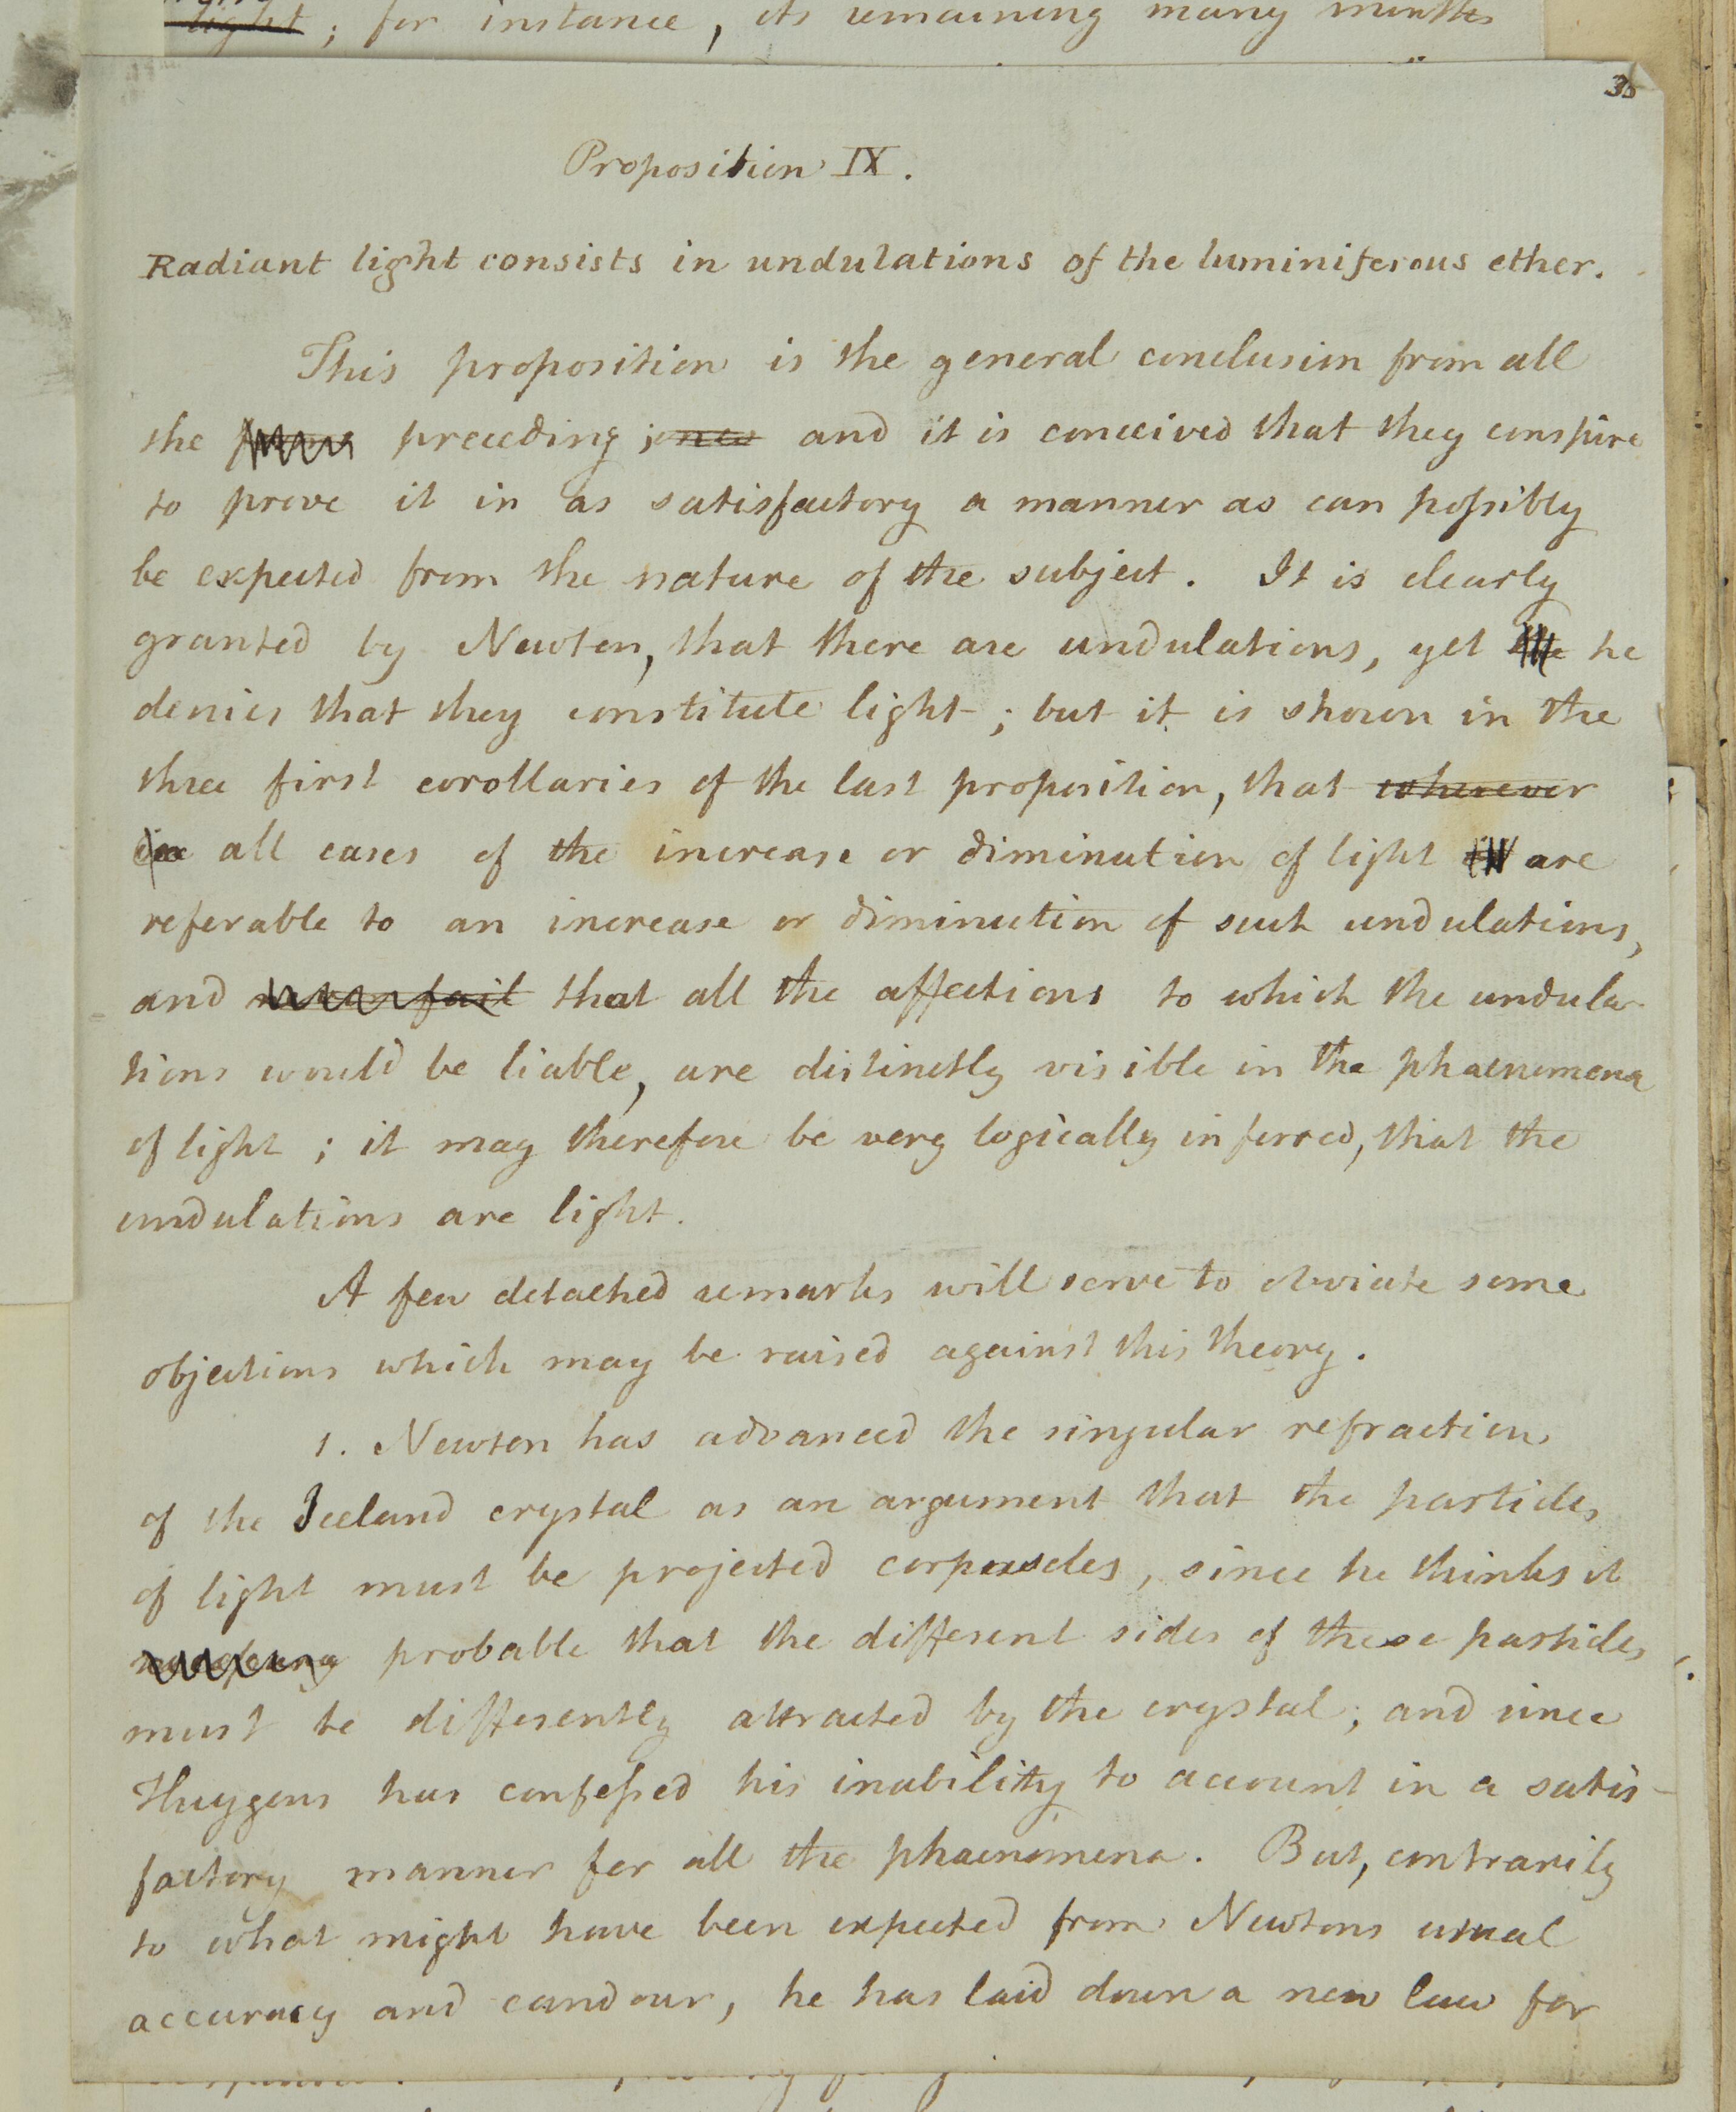 light ; for instance, its remaining many months
30
Proposition IX.
Radiant light consists in undulations of the luminiferous ether.
This proposition is the general conclusion from all
the preceding ; ones and it is conceived that they conspire
to prove it in as satisfactory a manner as can possibly
be expected from the nature of the subject. It is clearly
granted by Newton, that there are undulations, yet he
denies that they constitute light ; but it is shown in the
three first corollaries of the last proposition, that wherever
all cases of the increase or diminution of light are
referable to an increase or diminution of such undulations,
and never fail that all the affections to which the undula-
tions would be liable, are distinctly visible in the phaenomena
of light ; it may therefore be very logically inferred, that the
undulations are light.
A few detached remarks will serve to obviate some
objections which may be raised against this theory.
1. Newton has advanced the singular refraction
of the Iceland crystal as an argument that the particles
of light must be projected corpuscles, since he thinks it
probable that the different sides of these particles
must be differently attracted by the crystal ; and since
Huygens has confessed his inability to account in a satis-
factory manner for all the phaenomena. But, contrarily
to what might have been expected from Newtons usual
accuracy and candour, he has laid down a new law for